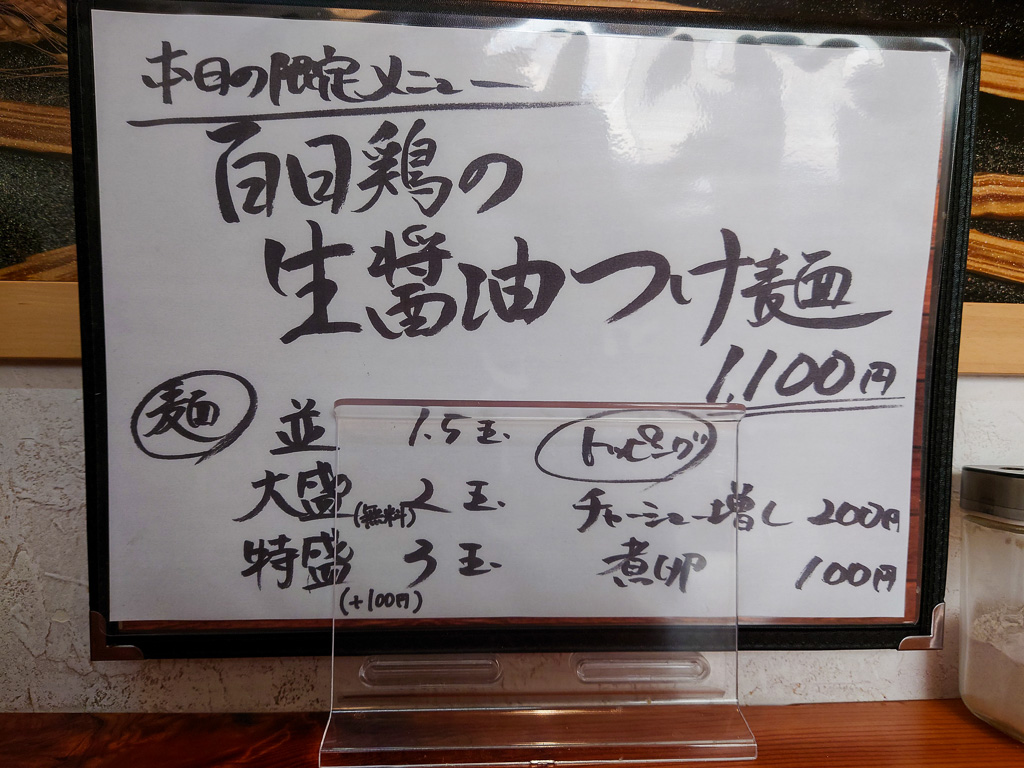 本日の限定メニュー
百日鶏の
生醤油つけ麺
1,100円
麺
並 1.5玉.
大盛(無料) 2玉.
特盛 3玉.
(+100円)
トッピング
チャーシュー増し 200円
煮卵 100円